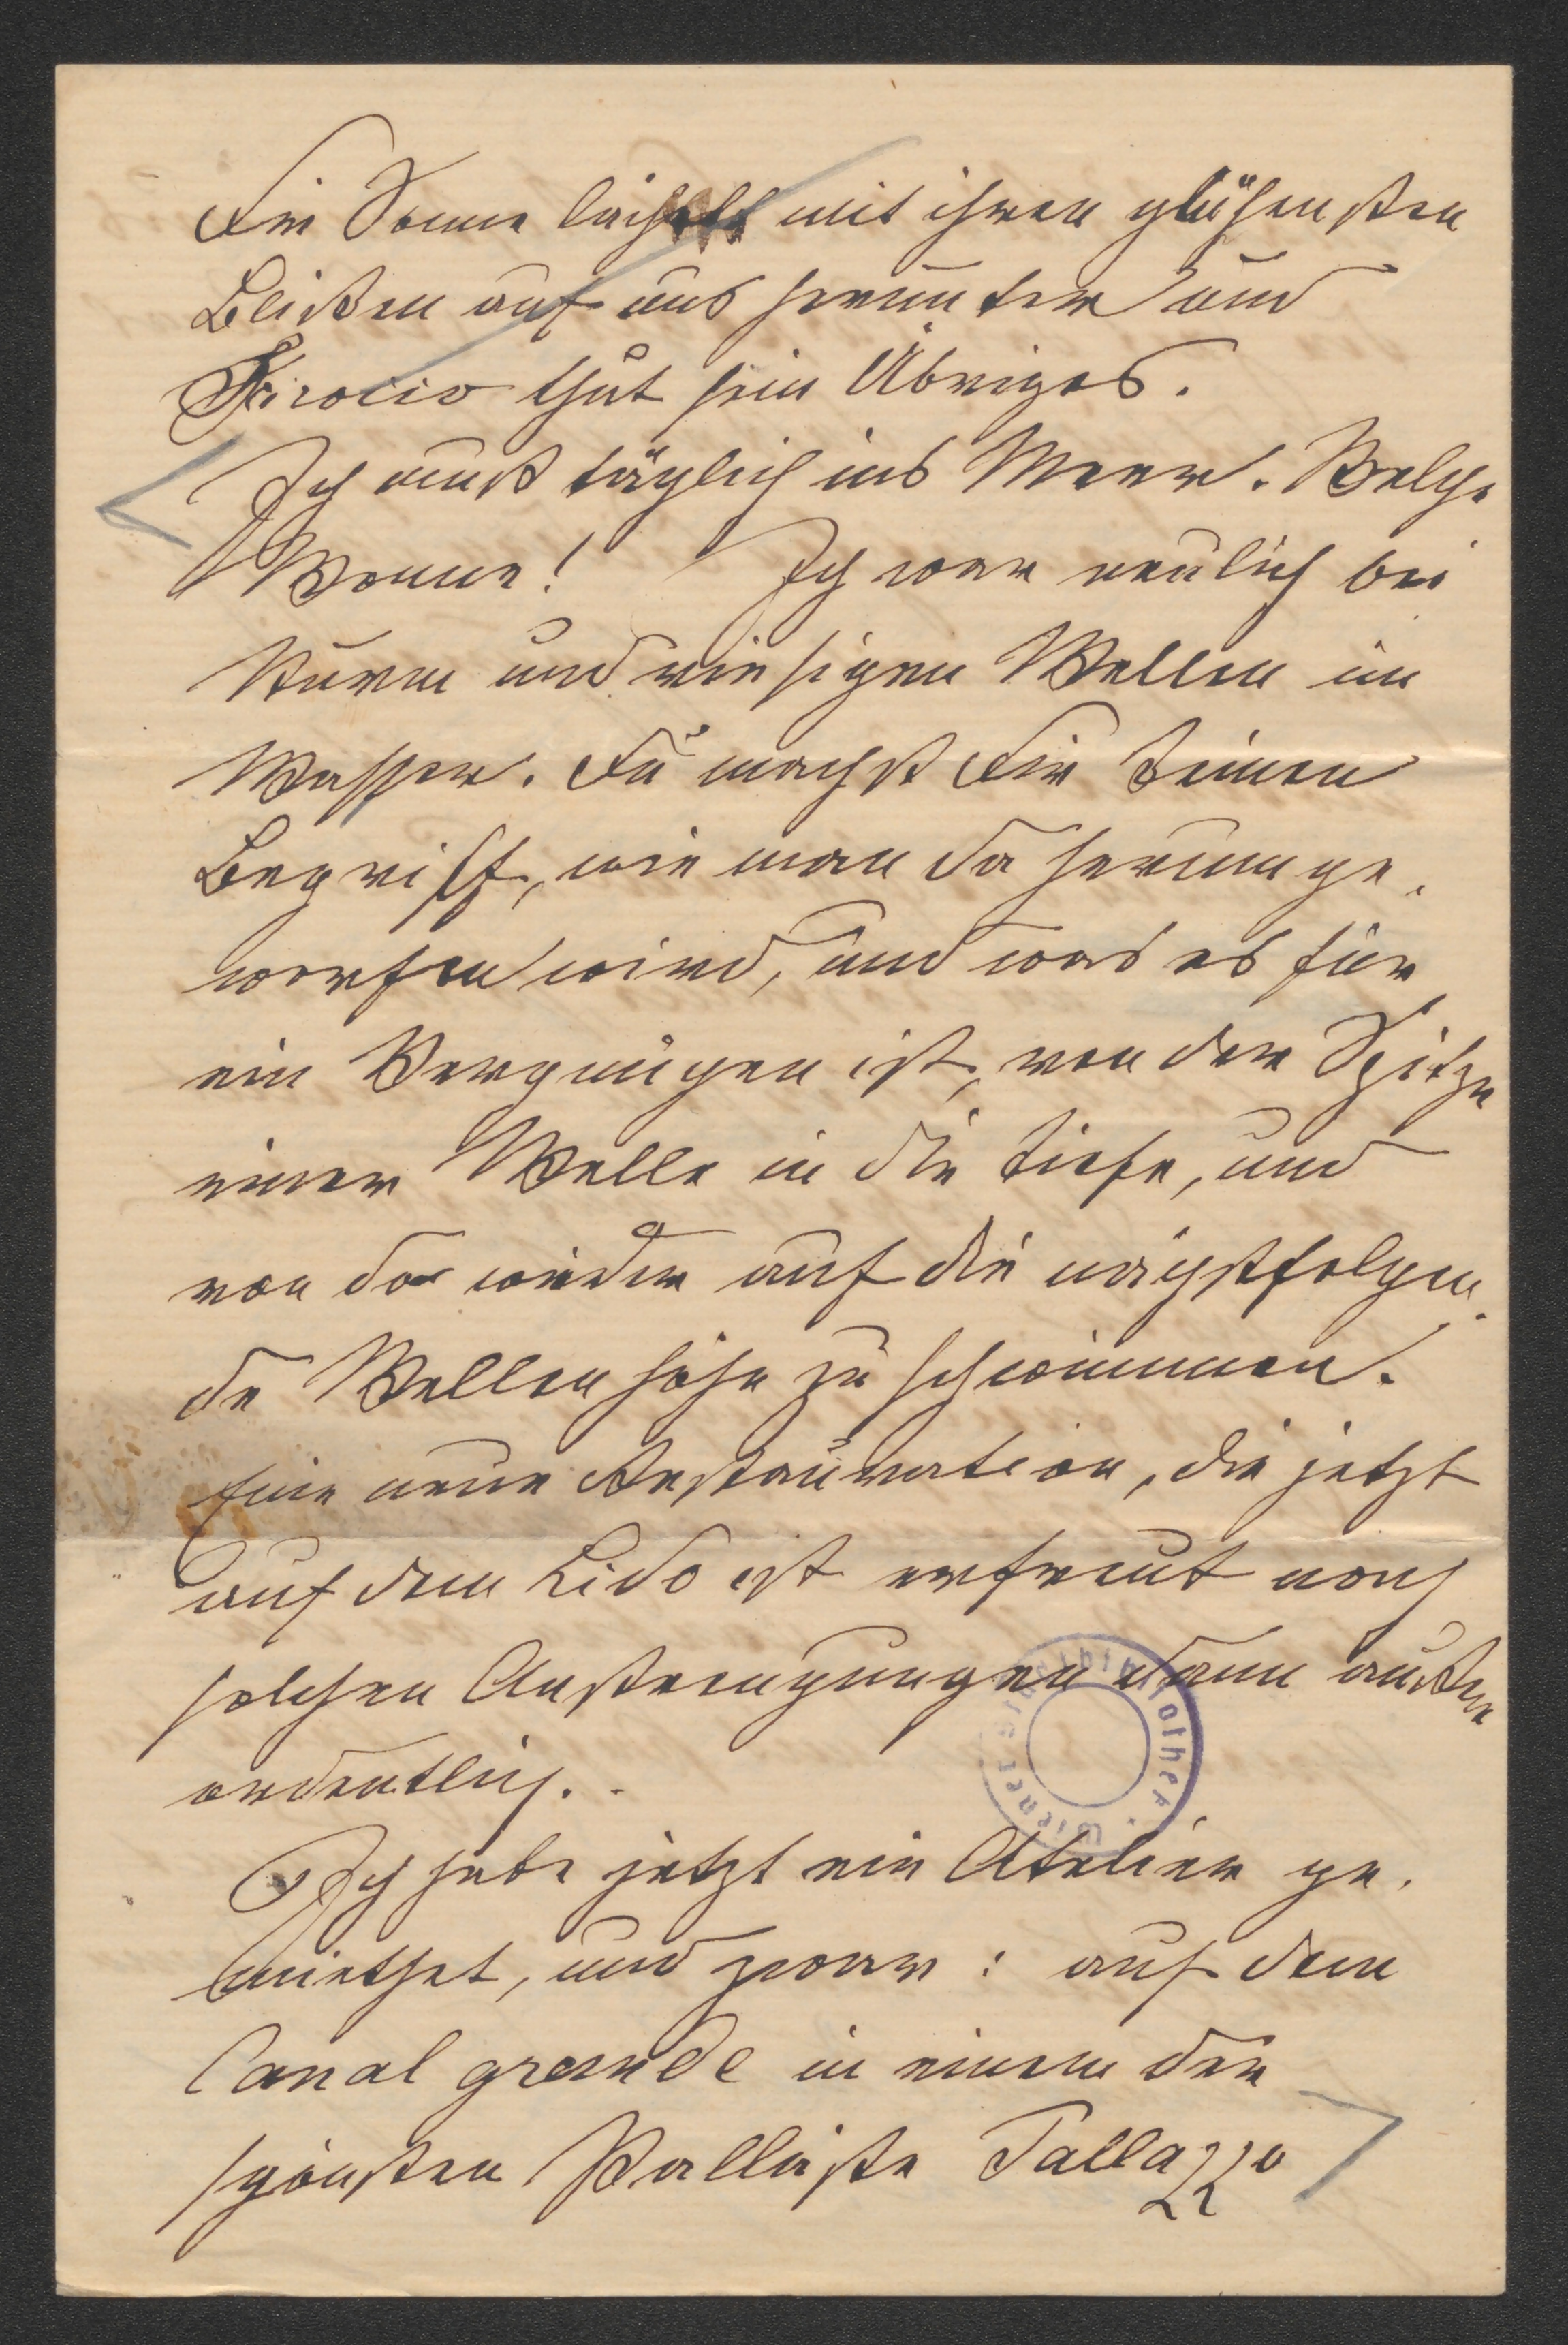 Die Sonne lächelt mit ihren glühensten
Blicken auf uns herunter und
Scirocco thut sein Übriges.
Ich muß täglich ins Meer. Welche
Wonne! Ich war neulich bei
Sturm und riesigen Wellen im
Wasser. Du machst Dir keinen
Begriff, wie man da herumge-
worfen wird, und was es für
ein Vergnügen ist, von der Spitze
einer Welle in die Tiefe, und
von da wieder auf die nächstfolgen-
de Wellenhöhe zu schwimmen.
Eine neue Restauration, die jetzt
auf dem Lido ist erfreut nach
solchen Anstrengungen dann außer
ordentlich.
Ich habe jetzt ein Atelier ge-
miethet, und zwar: auf dem
Canal grande in einem der
schönsten Palläste Pallazzo
Wiener Stadtbibliothek